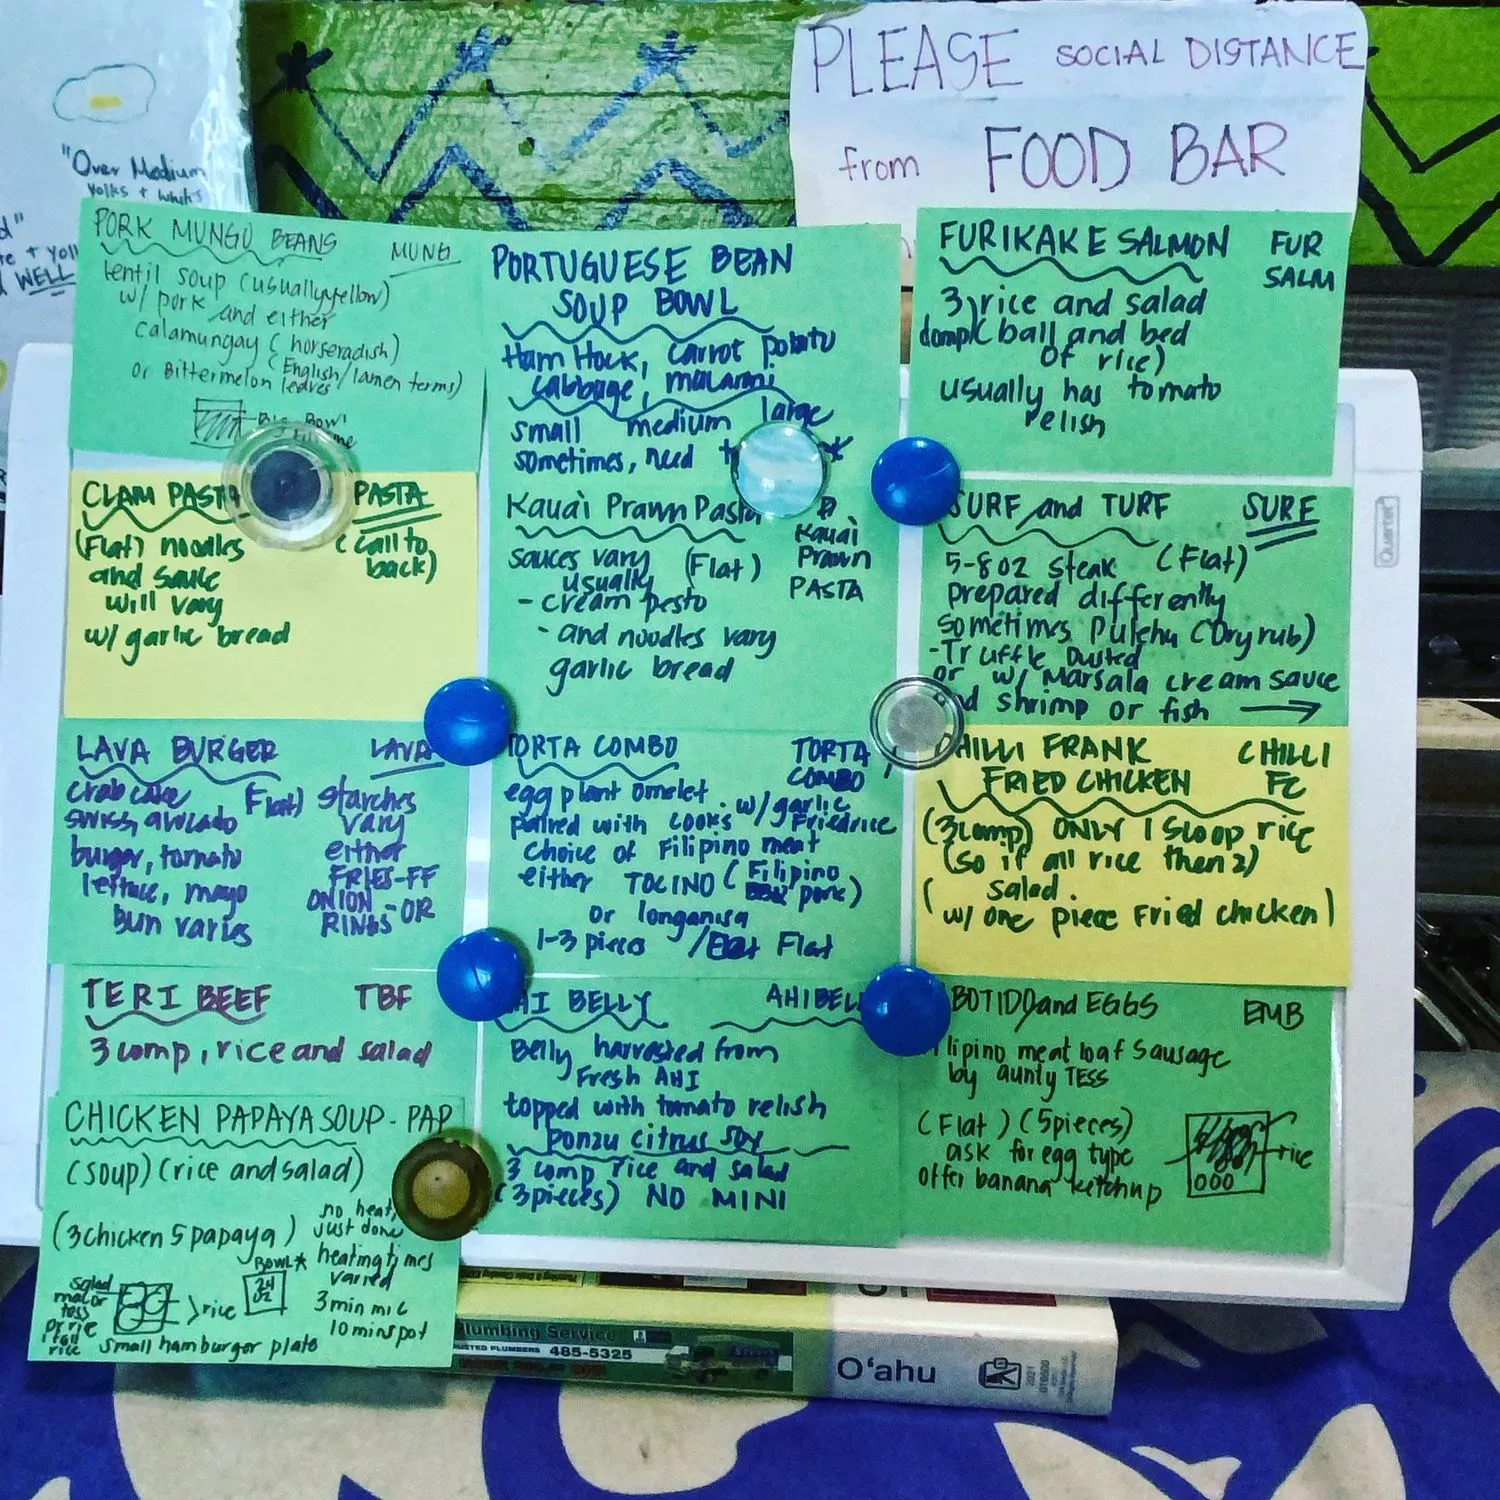 PLEASE SOCIAL DISTANCE
from FOOD BAR
"Over Medium
yolks + whits
WELL
PORK MUNGO BEANS MUNG
lentil soup (usually yellow)
w/ pork and either
calamungay (horseradish)
or Bittermelon leaves (English/lamen terms)
Bowl
CLAM PASTA PASTA
(Flat) noodles (call to
and sauce back)
will vary
w/ garlic bread
LAVA BURGER LAVA
crab cake (Flat) starches
swiss, avocado vary
burger, tomato either
lettuce, mayo FRIES-FF
bun varies ONION-OR
RINGS
TERI BEEF TBF
3 comp, rice and salad
CHICKEN PAPAYA SOUP - PAP
(soup) (rice and salad)
(3 chicken 5 papaya)
no heat,
just done
heating times
varied
3 min mic
10 mins pot
BOWL*
24
OZ
salad
mac or
toss
rice
>rice
small hamburger plate
PORTUGUESE BEAN
SOUP BOWL
Ham Hock, carrot potato
cabbage, macaroni
small medium large
sometimes, need
Kauai Prawn Pasta
Kauai
Prawn
PASTA
sauces vary (Flat)
usually
- cream pesto
- and noodles vary
garlic bread
TORTA COMBO TORTA
COMBO
egg plant omelet w/ garlic
paired with cooks Friedrice
choice of Filipino meat
either TOCINO (Filipino
pork)
or longanisa
1-3 pieces / Flat
AHI BELLY AHIBELL
Belly harvested from
Fresh AHI
topped with tomato relish
ponzu citrus soy
3 comp rice and salad
(3pieces) NO MINI
FURIKAKE SALMON FUR
SALM
3 rice and salad
comp (ball and bed
of rice)
usually has tomato
relish
SURF and TURF SURF
5-8oz steak (Flat)
prepared differently
sometimes Pulehu (Dry rub)
-Truffle Dusted
or w/ Marsala cream sauce
and shrimp or fish →
CHILLI FRANK CHILLI
FRIED CHICKEN FC
(3 comp) ONLY 1 Scoop rice
(so if all rice then 2)
salad.
(w/ one piece Fried chicken)
BOTIDO and EGGS EMB
Filipino meat loaf Sausage
by aunty TESS
(Flat) (5pieces)
ask for egg type
offer banana ketchup
rice
Quartet
Plumbing Service
TRUSTED PLUMBERS 485-5325
Oʻahu